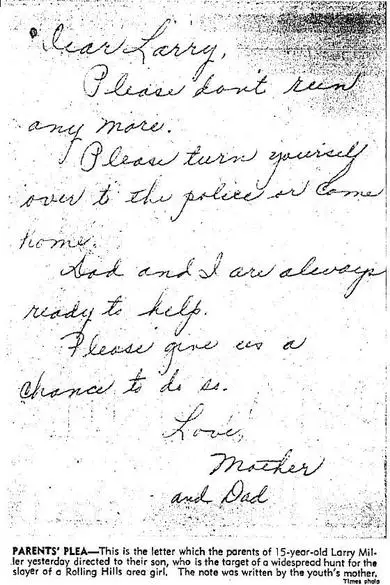 Dear Larry,
Please don't run
any more.
Please turn yourself
over to the police or come
home.
Dad and I are always
ready to help.
Please give us a
chance to do so.
Love,
Mother
and Dad
PARENTS' PLEA—This is the letter which the parents of 15-year-old Larry Mil-
ler yesterday directed to their son, who is the target of a widespread hunt for the
slayer of a Rolling Hills area girl. The note was written by the youth's mother.
Times photo